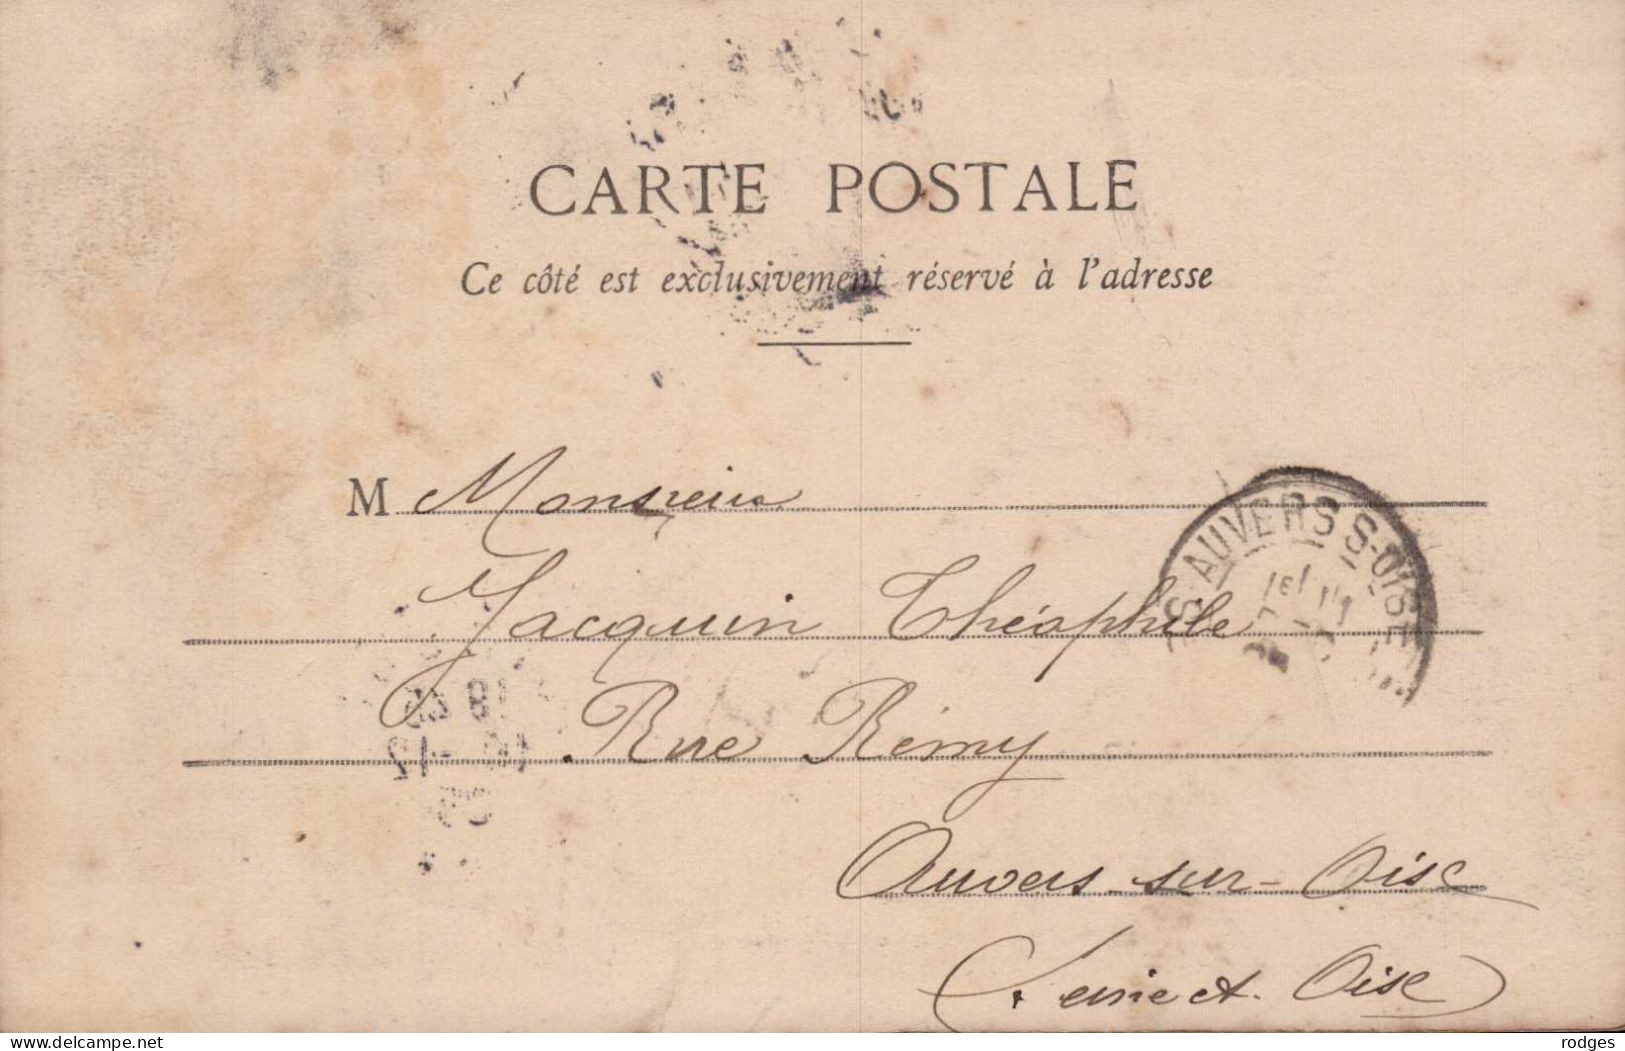 CARTE POSTALE
Ce côté est exclusivement réservé à l'adresse
M Monsieur
Jacquin Théophile
Rue Rémy
Auvers-sur-Oise
(Seine et Oise)
AUVERS S-OISE
18
12
www.delcampe.net
rodges